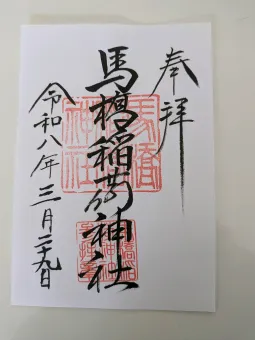 奉拝
馬橋稲荷神社
令和八年三月二十九日
馬橋
神社